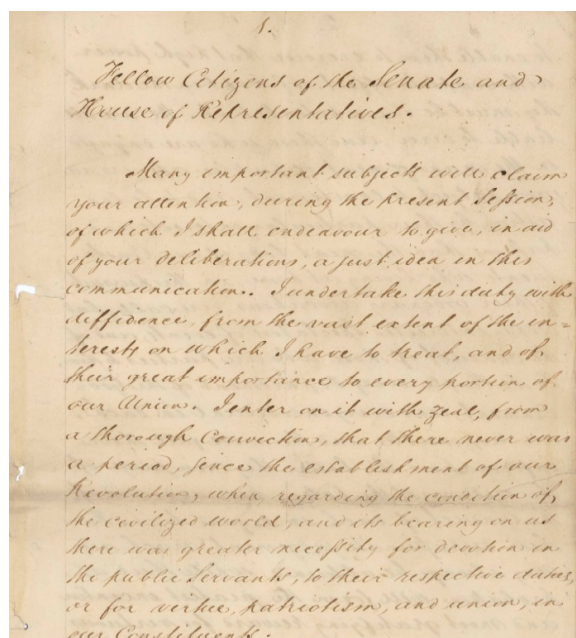 1.
Fellow Citizens of the Senate and
House of Representatives.
Many important subjects will claim
your attention, during the present Session,
of which I shall endeavour to give, in aid
of your deliberations, a just idea in this
communication. I undertake this duty with
diffidence, from the vast extent of the in=
terests on which I have to treat, and of
their great importance to every portion of
our Union. I enter on it with zeal, from
a thorough Conviction, that there never was
a period, since the establishment of our
Revolution, when regarding the condition of
the civilized world, and its bearing on us
there was greater necessity for devotion in
the public Servants, to their respective duties,
or for vertue, patriotism, and union, in
our Constituents.